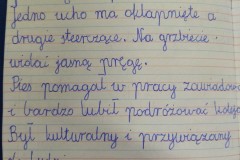 jedno ucho ma oklapnięte a
drugie sterczące. Na grzbiecie
widać jasną pręgę.
Pies pomagał w pracy zawiadow
i bardzo lubił podróżować koleją
Był kulturalny i przywiązany
do ludzi